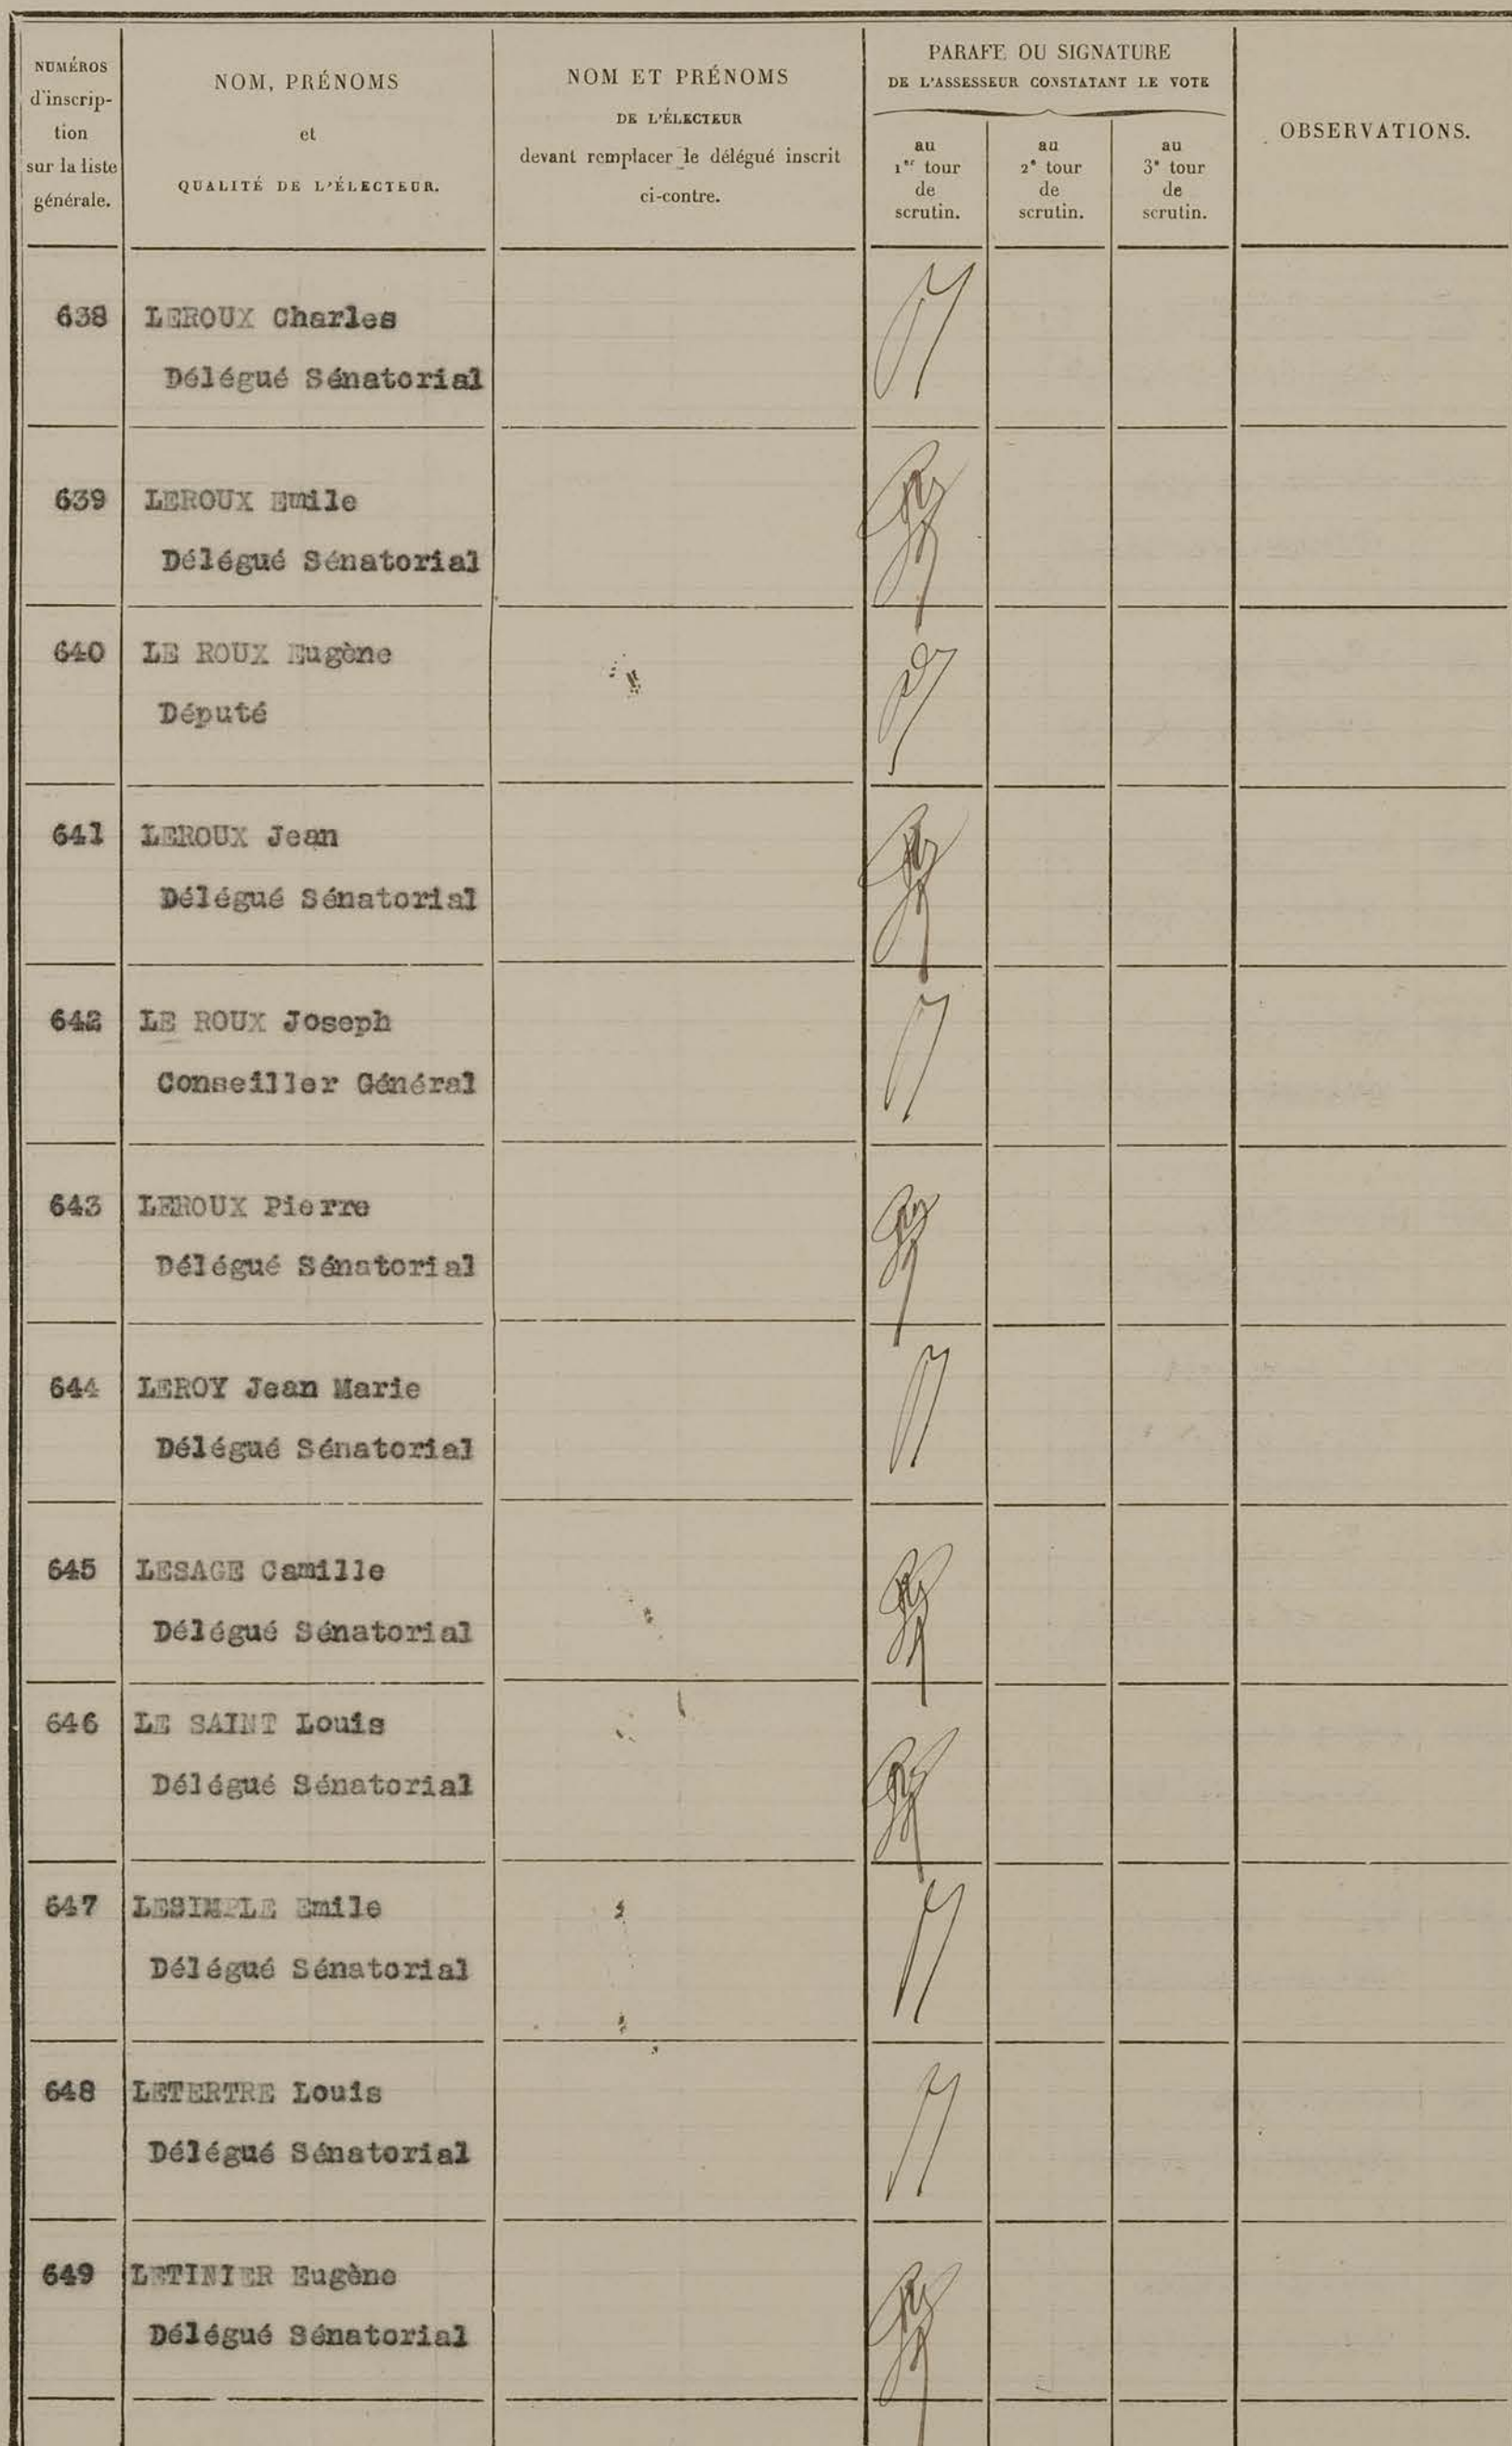 NUMÉROS
d'inscrip-
tion
sur la liste
générale.
NOM, PRÉNOMS
et
QUALITÉ DE L'ÉLECTEUR.
NOM ET PRÉNOMS
DE L'ÉLECTEUR
devant remplacer le délégué inscrit
ci-contre.
PARAFE OU SIGNATURE
DE L'ASSESSEUR CONSTATANT LE VOTE
au
1er tour
de
scrutin.
au
2e tour
de
scrutin.
au
3e tour
de
scrutin.
OBSERVATIONS.
638 LEROUX Charles
Délégué Sénatorial
639 LEROUX Emile
Délégué Sénatorial
640 LE ROUX Eugène
Député
641 LEROUX Jean
Délégué Sénatorial
642 LE ROUX Joseph
Conseiller Général
643 LEROUX Pierre
Délégué Sénatorial
644 LEROY Jean Marie
Délégué Sénatorial
645 LESAGE Camille
Délégué Sénatorial
646 LE SAINT Louis
Délégué Sénatorial
647 LESIMPLE Emile
Délégué Sénatorial
648 LETERTRE Louis
Délégué Sénatorial
649 LETINIER Eugène
Délégué Sénatorial